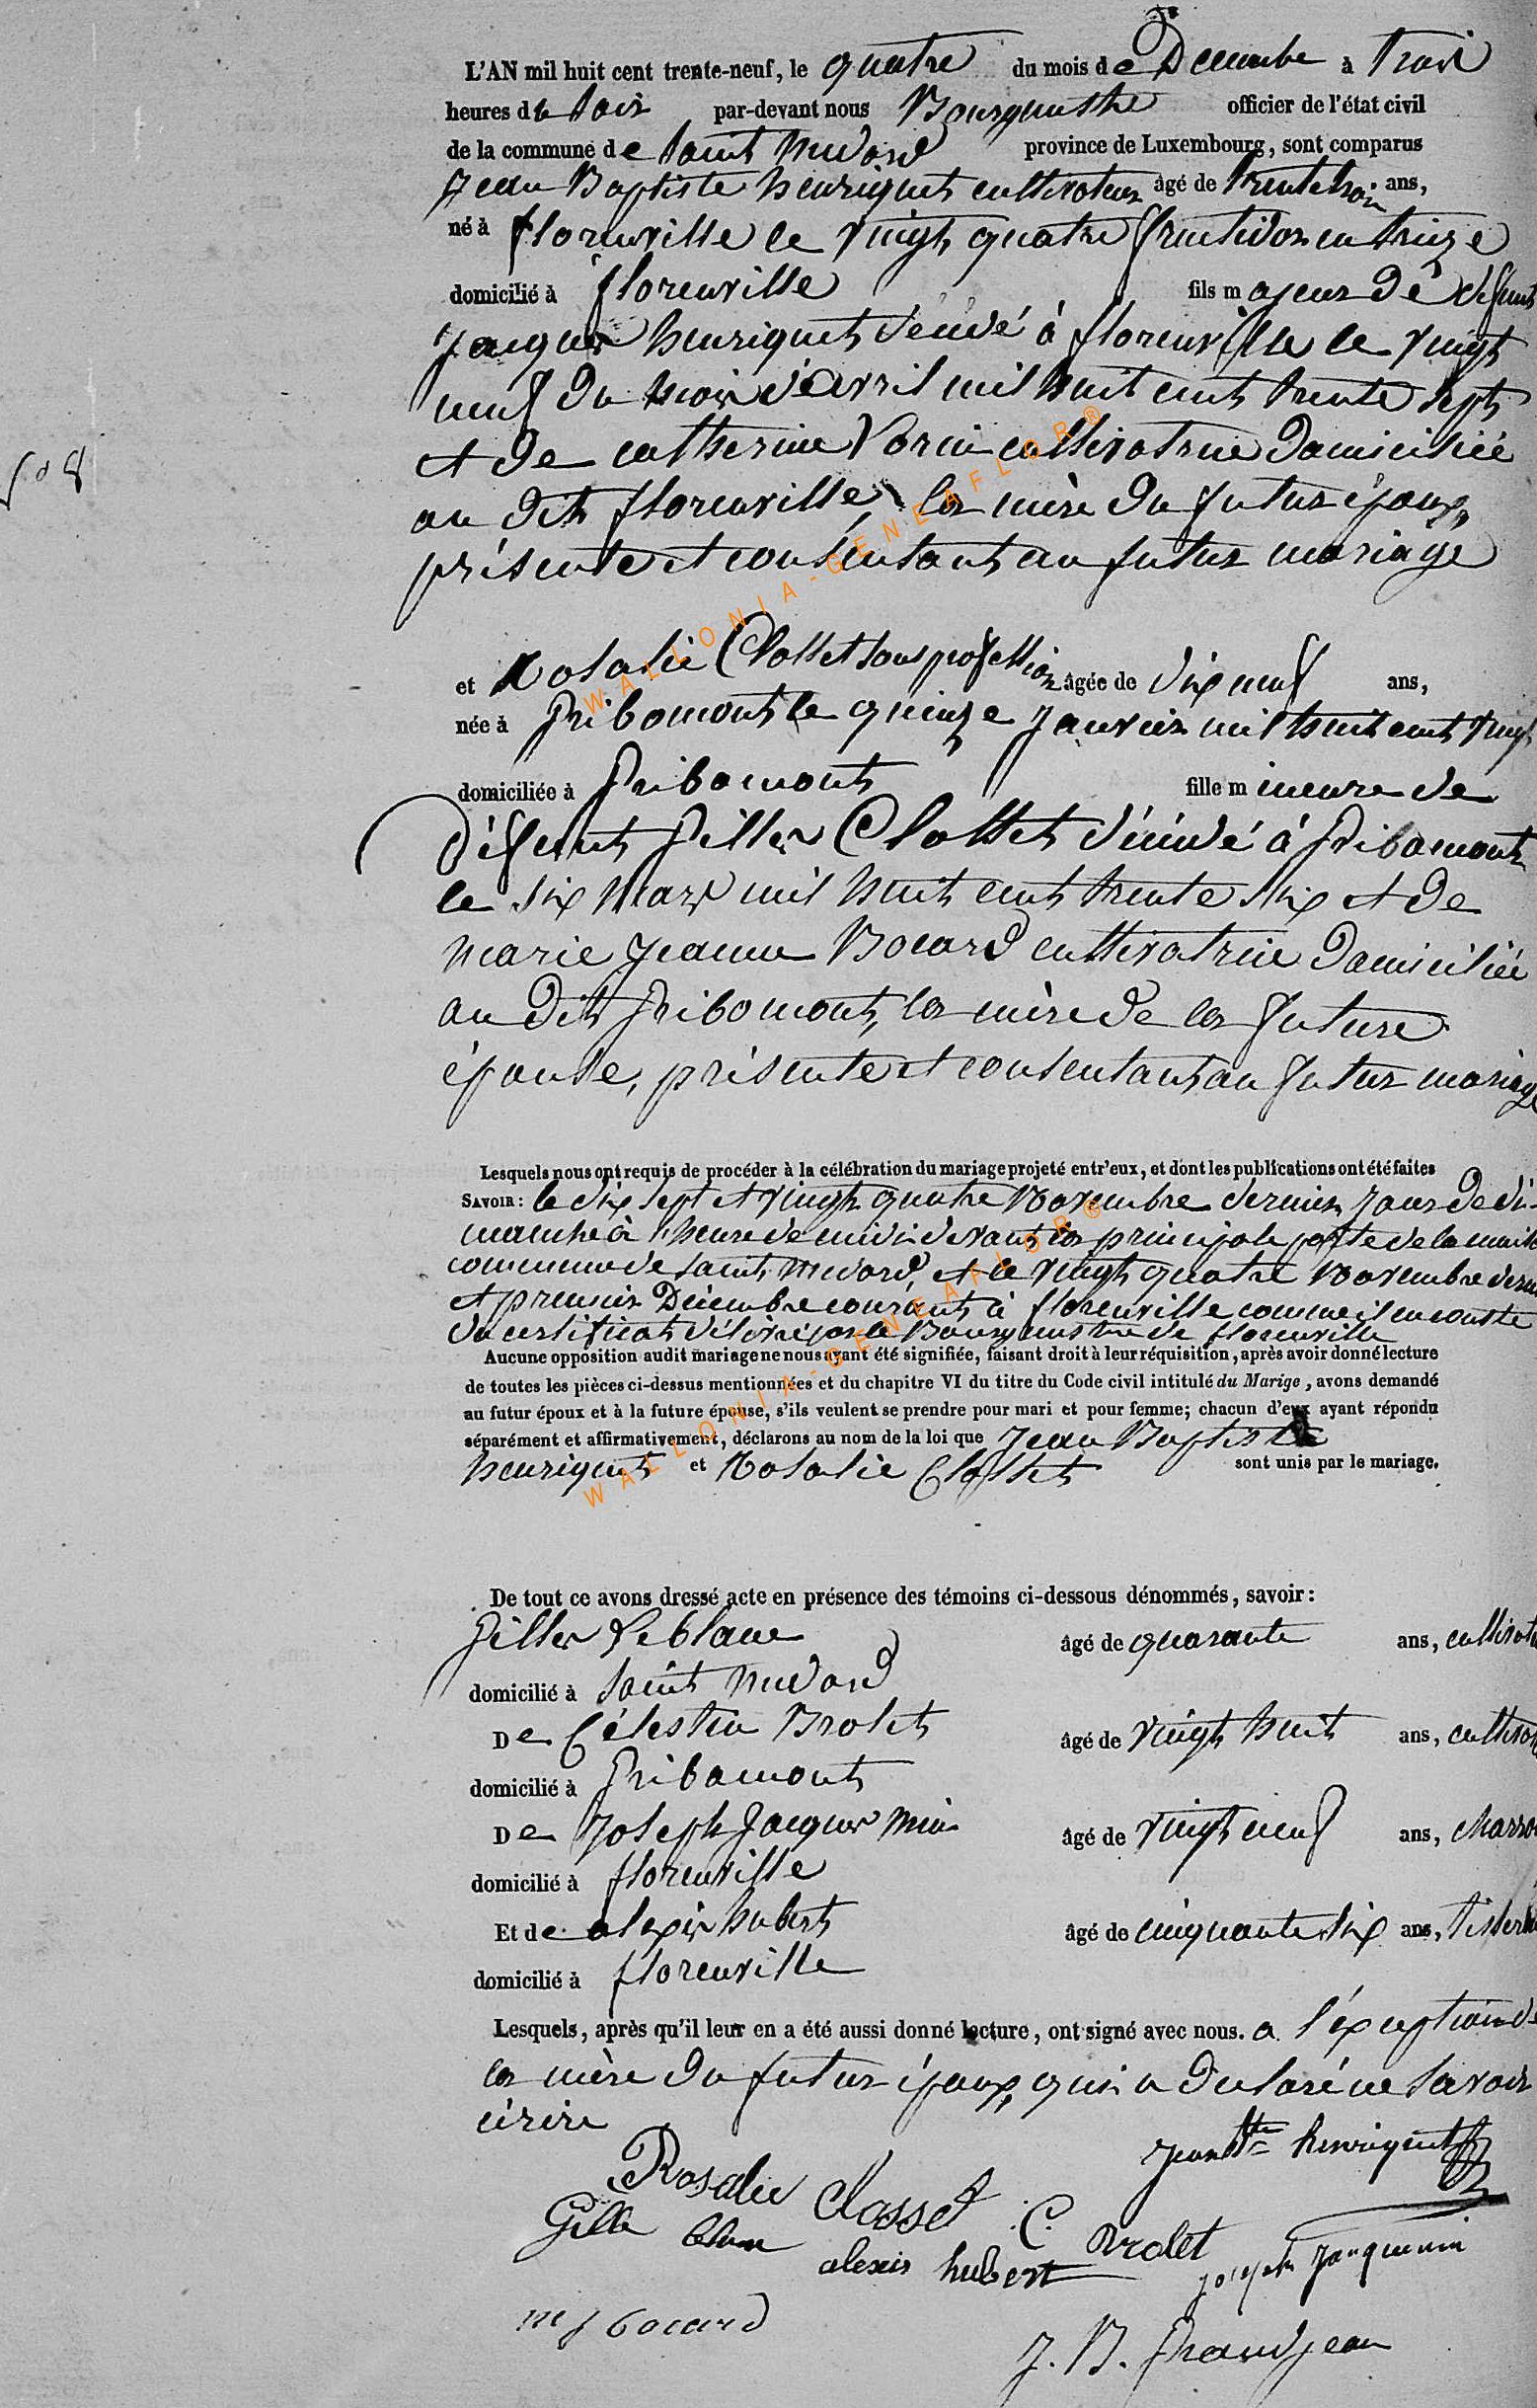 L'AN mil huit cent trente-neuf, le quatre du mois de Decembe à trois
heures du soir par-devant nous Bourgmestre officier de l'état civil
de la commune de saint medard province de Luxembourg, sont comparus
Jean Baptiste henriquet cultivateur âgé de trente trois ans,
né à florenville le vingt quatre fructidor an treize
domicilié à florenville fils majeur de defunt
Jacques henriquet décédé à florenville le vingt
neuf du mois d'avril mil huit cent trente sept
et de catherine cultivatrice domiciliée
au dit florenville, la mère du futur époux,
présente et consentant au futur mariage
et Rosalie Closset sans profession âgée de dix neuf ans,
née à gribomont le quinze janvier mil huit cent vingt
domiciliée à gribomont fille mineure de
défunt gilles Closset décédé à gribomont
le six mars mil huit cent trente six et de
marie jeanne Bocard cultivatrice domiciliée
au dit gribomont, la mère de la future
épouse, présente et consentant au futur mariage
508
Lesquels nous ont requis de procéder à la célébration du mariage projeté entr'eux, et dont les publications ont été faites
SAVOIR: le dix sept et vingt quatre Novembre dernier jour de di-
manche à l'heure de midi devant la principale porte de la maison
commune de saint medard, et le vingt quatre Novembre dernier
et premier Décembre courant à florenville comme il en conste
du certificat délivré par le Bourgmestre de florenville
Aucune opposition audit mariage ne nous ayant été signifiée, faisant droit à leur réquisition, après avoir donné lecture
de toutes les pièces ci-dessus mentionnées et du chapitre VI du titre du Code civil intitulé du Marige, avons demandé
au futur époux et à la future épouse, s'ils veulent se prendre pour mari et pour femme; chacun d'eux ayant répondu
séparément et affirmativement, déclarons au nom de la loi que Jean Baptiste
henriquet et Rosalie Closset sont unis par le mariage.
De tout ce avons dressé acte en présence des témoins ci-dessous dénommés, savoir:
gilles Leblanc âgé de quarante ans, cultivate
domicilié à saint medard
De Célestin Brolet âgé de vingt huit ans, cultivat
domicilié à gribomont
De Joseph Jacques min âgé de vingt neuf ans, charron
domicilié à florenville
Et de alexis hubert âgé de cinquante six ans, tisseran
domicilié à florenville
Lesquels, après qu'il leur en a été aussi donné lecture, ont signé avec nous. a l'exception de
la mère du futur époux, qui a déclaré ne savoir
écrire
Jean Bte henriquet
Rosalie Classet
Gille blan C. Brolet
alexis hubert joseph Jacquemin
m j bocard
J. B. grandjean
WALLONIA-GENEAFLOR®
WALLONIA-GENEAFLOR®